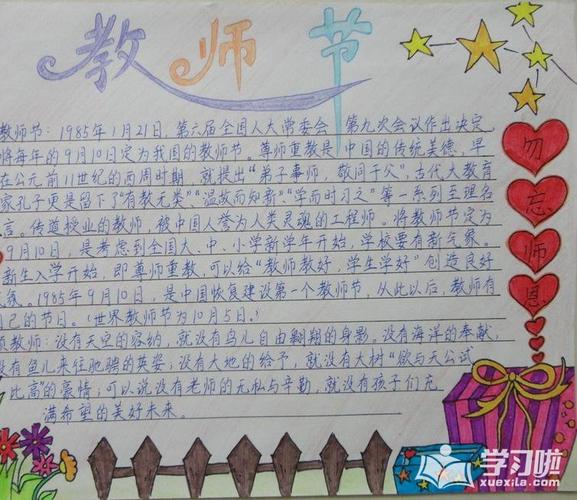 教师节
教师节：1985年1月21日，第六届全国人大常委会 第九次会议作出决定，
将每年的9月10日定为我国的教师节。尊师重教是中国的传统美德，早
在公元前11世纪的西周时期，就提出“弟子事师，敬同于父”，古代大教育
家孔子更是留下了“有教无类”“温故而知新”“学而时习之”等一系列至理名
言。传道授业的教师，被中国人誉为人类灵魂的工程师。将教师节定为
9月10日，是考虑到全国大、中、小学新学年开始，学校要有新气象。
新生入学开始，即尊师重教，可以给“教师教好，学生学好”创造良好
气氛。1985年9月10日，是中国恢复建设第一个教师节，从此以后，教师有
自己的节日。（世界教师节为10月5日。）
颂教师：没有天空的容纳，就没有鸟儿自由翱翔的身影。没有海洋的奉献，
没有鱼儿来往驰骋的英姿；没有大地的给予，就没有大树“欲与天公试
比高”的豪情；可以说没有老师的无私与辛勤，就没有孩子们充
满希望的美好未来。
勿
忘
师
恩
学习啦
xuexila.com